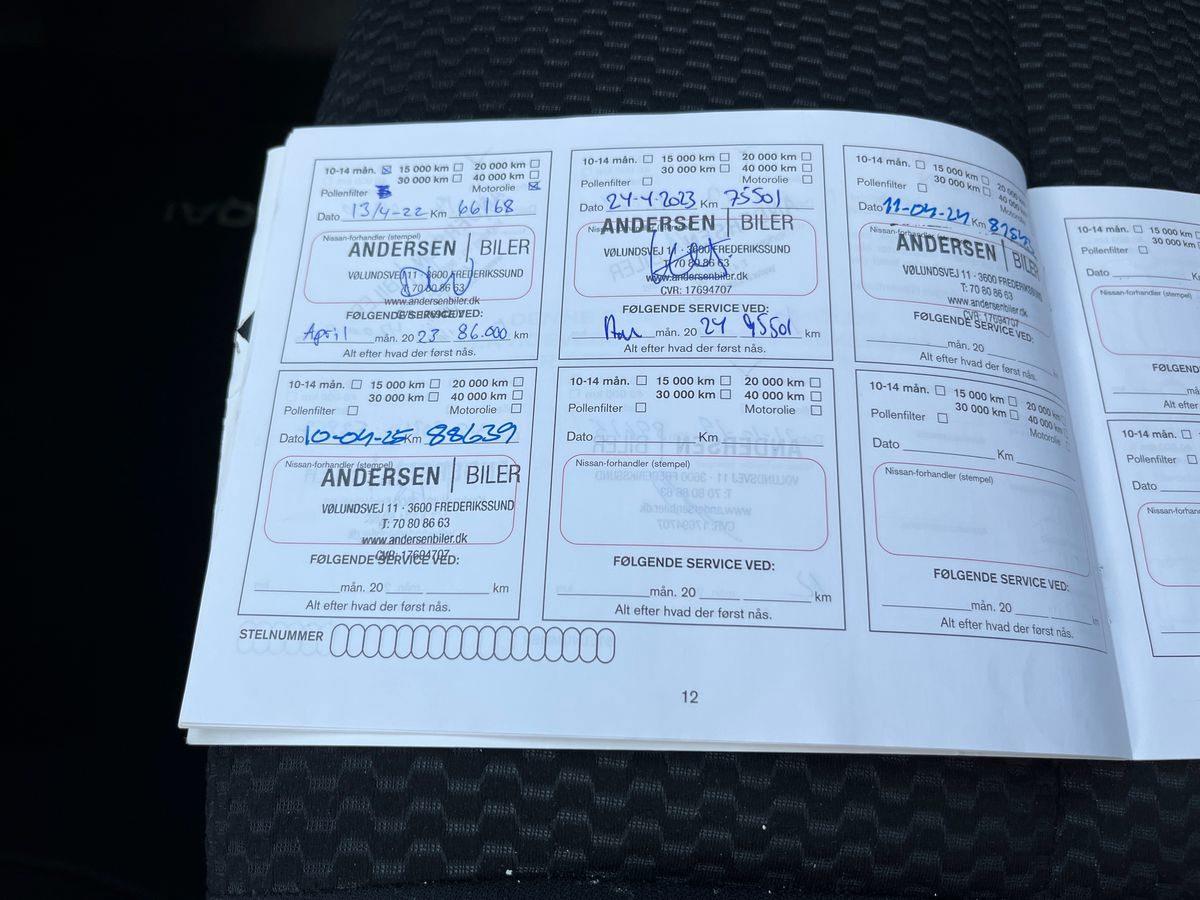 10-14 mån. ☒ 15 000 km ☐ 20 000 km ☐
30 000 km ☐ 40 000 km ☐
Pollenfilter Motorolie ☒
Dato 13/4-22 Km 66168
Nissan-forhandler (stempel)
ANDERSEN | BILER
VØLUNDSVEJ 11 · 3600 FREDERIKSSUND
T: 70 80 86 63
www.andersenbiler.dk
FØLGENDE SERVICE VED:
April mån. 20 23 86.000 km
Alt efter hvad der først nås.
10-14 mån. ☐ 15 000 km ☐ 20 000 km ☐
30 000 km ☐ 40 000 km ☐
Pollenfilter ☐ Motorolie ☐
Dato 24-4-2023 Km 75501
ANDERSEN | BILER
VØLUNDSVEJ 11 · 3600 FREDERIKSSUND
T: 70 80 86 63
www.andersenbiler.dk
CVR: 17694707
FØLGENDE SERVICE VED:
mån. 20 24 95501 km
Alt efter hvad der først nås.
10-14 mån. ☐ 15 000 km ☐
30 000 km ☐ 40 000
Pollenfilter ☐
Dato 11-04-24 Km
Nissan-forhandler
ANDERSEN | BILER
VØLUNDSVEJ 11 · 3600 FREDERIKSSUND
T: 70 80 86 63
www.andersenbiler.dk
CVR: 17694707
FØLGENDE SERVICE VED:
mån. 20
Alt efter hvad der først nås.
10-14 mån. ☐ 15 000 km ☐ 20 000 km ☐
30 000 km ☐ 40 000 km ☐
Pollenfilter ☐ Motorolie ☐
Dato 10-04-25 Km 88639
Nissan-forhandler (stempel)
ANDERSEN | BILER
VØLUNDSVEJ 11 · 3600 FREDERIKSSUND
T: 70 80 86 63
www.andersenbiler.dk
CVR: 17694707
FØLGENDE SERVICE VED:
mån. 20 km
Alt efter hvad der først nås.
10-14 mån. ☐ 15 000 km ☐ 20 000 km ☐
30 000 km ☐ 40 000 km ☐
Pollenfilter ☐ Motorolie ☐
Dato Km
Nissan-forhandler (stempel)
FØLGENDE SERVICE VED:
mån. 20 km
Alt efter hvad der først nås.
10-14 mån. ☐ 15 000 km ☐ 20 000
30 000 km ☐ 40 000 km
Pollenfilter ☐ Motorolie
Dato Km
Nissan-forhandler (stempel)
FØLGENDE SERVICE VED:
mån. 20 km
Alt efter hvad der først nås.
STELNUMMER
12
10-14 mån. ☐ 15 000
30 000
Pollenfilter ☐
Dato
Nissan-forhandler (stempel)
FØLGEND
Alt efter
10-14 mån. ☐ 15
Pollenfilter ☐
Dato